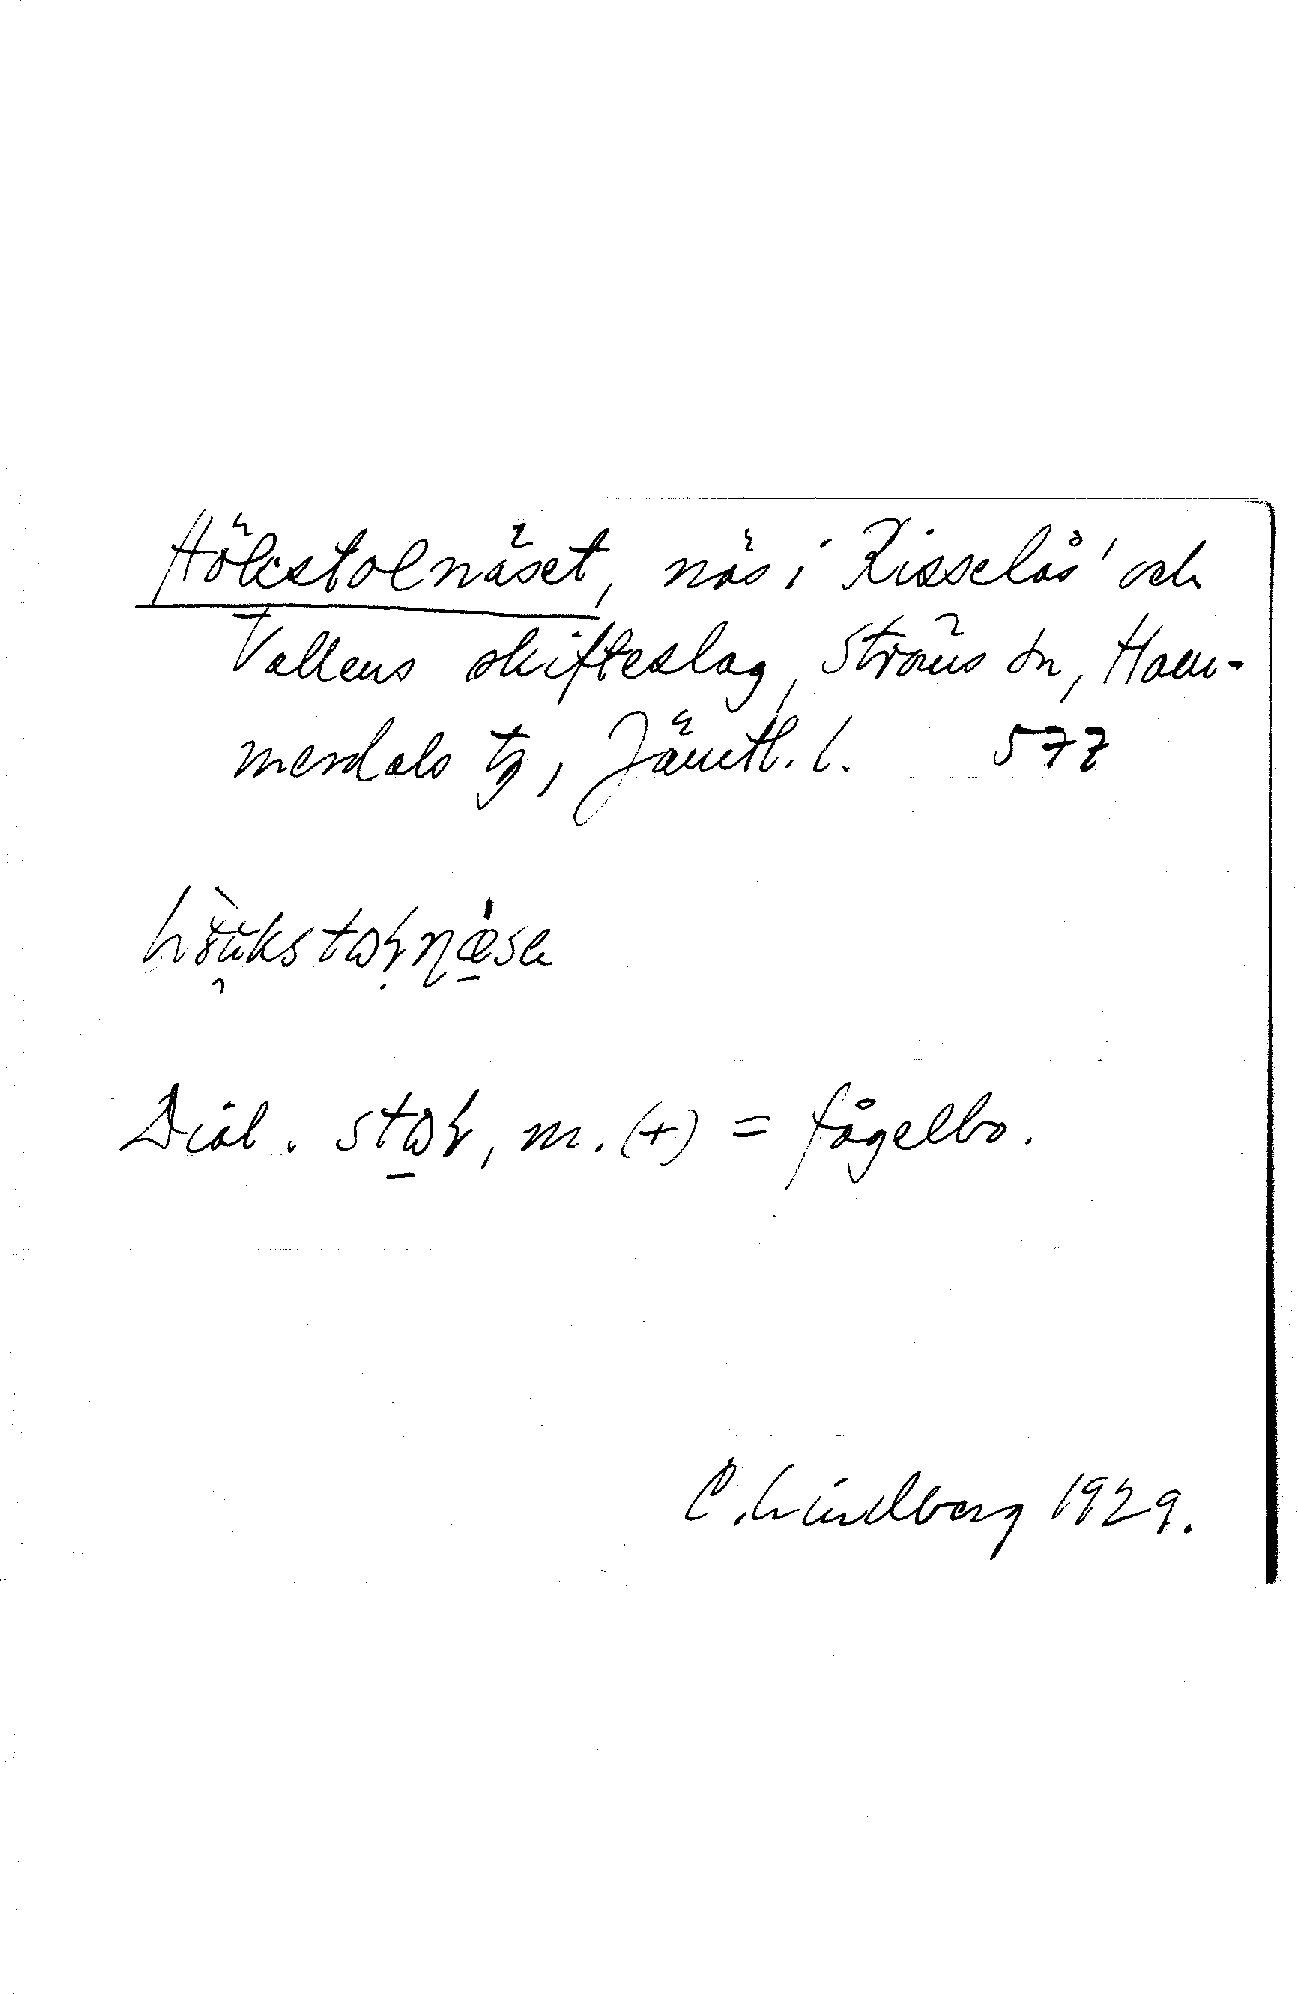 Hökstolnäset, näs i Risselås' och
Vallens skifteslag, Ströms sn, Ham-
merdals tg, Jämtl. l. 577
Dial. stωɫ, m. (+) = fågelbo.
C. Lindberg 1929.